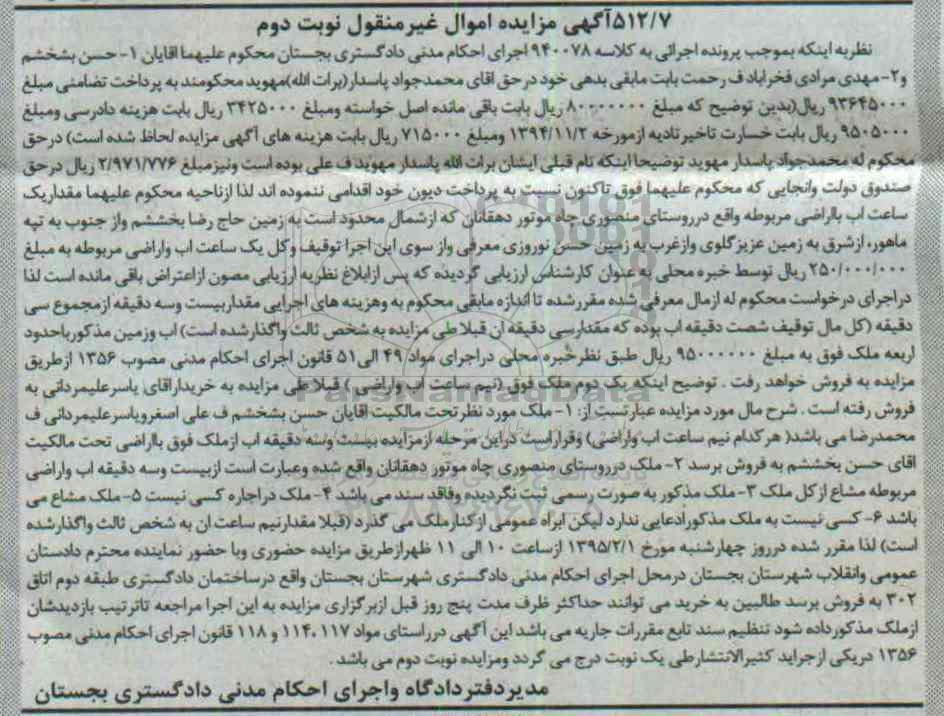 ۵۱۲/۷آگهی مزایده اموال غیرمنقول نوبت دوم
نظربه اینکه بموجب پرونده اجرائی به کلاسه ۹۴۰۰۷۸ اجرای احکام مدنی دادگستری بجستان محکوم علیهما اقایان ۱-حسن بشخشم
و۲- مهدی مرادی فخراباد ف رحمت بابت مابقی بدهی خود درحق اقای محمدجواد پاسدار(برات الله)مهوید محکومند به پرداخت تضامنی مبلغ
۹۳۶۴۵۰۰۰ ریال(بدین توضیح که مبلغ ۸۰۰۰۰۰۰۰ ریال بابت باقی مانده اصل خواسته ومبلغ ۳۴۲۵۰۰۰ ریال بابت هزینه دادرسی ومبلغ
۹۵۰۵۰۰۰ ریال بابت خسارت تاخیرتادیه ازمورخه ۱۳۹۴/۱۱/۲ ومبلغ ۷۱۵۰۰۰ ریال بابت هزینه های آگهی مزایده لحاظ شده است) درحق
محکوم له محمدجواد پاسدار مهوید توضیحا اینکه نام قبلی ایشان برات الله پاسدار مهوید ف علی بوده است ونیزمبلغ ۲/۹۷۱/۷۷۶ ریال درحق
صندوق دولت وانجایی که محکوم علیهما فوق تاکنون نسبت به پرداخت دیون خود اقدامی ننموده اند لذا ازناحیه محکوم علیهما مقداریک
ساعت اب بااراضی مربوطه واقع درروستای منصوری چاه موتور دهقانان که ازشمال محدود است به زمین حاج رضا بخششم واز جنوب به تپه
ماهور، ازشرق به زمین عزیزگلوی وازغرب به زمین حسن نوروزی معرفی واز سوی این اجرا توقیف وکل یک ساعت اب واراضی مربوطه به مبلغ
۲۵۰/۰۰۰/۰۰۰ ریال توسط خبره محلی به عنوان کارشناس ارزیابی گردیده که پس ازابلاغ نظریه ارزیابی مصون ازاعتراض باقی مانده است لذا
دراجرای درخواست محکوم له ازمال معرفی شده مقررشده تا اندازه مابقی محکوم به وهزینه های اجرایی مقداربیست وسه دقیقه ازمجموع سی
دقیقه (کل مال توقیف شصت دقیقه اب بوده که مقدارسی دقیقه ان قبلا طی مزایده به شخص ثالث واگذارشده است) اب وزمین مذکورباحدود
اربعه ملک فوق به مبلغ ۹۵۰۰۰۰۰۰ ریال طبق نظرخبره محلی دراجرای مواد ۴۹ الی ۵۱ قانون اجرای احکام مدنی مصوب ۱۳۵۶ ازطریق
مزایده به فروش خواهد رفت . توضیح اینکه یک دوم ملک فوق (نیم ساعت اب واراضی ) قبلا طی مزایده به خریداراقای یاسرعلیمردانی به
فروش رفته است . شرح مال مورد مزایده عبارتست از: ۱- ملک مورد نظرتحت مالکیت اقایان حسن بشخشم ف علی اصغرویاسرعلیمردانی ف
محمدرضا می باشد( هرکدام نیم ساعت اب واراضی) وقراراست دراین مرحله ازمزایده بیست وسه دقیقه اب ازملک فوق بااراضی تحت مالکیت
اقای حسن بخششم به فروش برسد ۲- ملک درروستای منصوری چاه موتور دهقانان واقع شده وعبارت است ازبیست وسه دقیقه اب واراضی
مربوطه مشاع ازکل ملک ۳- ملک مذکور به صورت رسمی ثبت نگردیده وفاقد سند می باشد ۴- ملک دراجاره کسی نیست ۵- ملک مشاع می
باشد ۶- کسی نیست به ملک مذکورادعایی ندارد لیکن ابراه عمومی ازکنارملک می گذرد (قبلا مقدارنیم ساعت ان به شخص ثالث واگذارشده
است) لذا مقرر شده درروز چهارشنبه مورخ ۱۳۹۵/۲/۱ ازساعت ۱۰ الی ۱۱ ظهرازطریق مزایده حضوری وبا حضور نماینده محترم دادستان
عمومی وانقلاب شهرستان بجستان درمحل اجرای احکام مدنی دادگستری شهرستان بجستان واقع درساختمان دادگستری طبقه دوم اتاق
۳۰۲ به فروش برسد طالبین به خرید می توانند حداکثر ظرف مدت پنج روز قبل ازبرگزاری مزایده به این اجرا مراجعه تاترتیب بازدیدشان
ازملک مذکورداده شود تنظیم سند تابع مقررات جاریه می باشد این آگهی درراستای مواد ۱۱۴،۱۱۷ و ۱۱۸ قانون اجرای احکام مدنی مصوب
۱۳۵۶ دریکی ازجراید کثیرالانتشارطی یک نوبت درج می گردد ومزایده نوبت دوم می باشد .
مدیردفتردادگاه واجرای احکام مدنی دادگستری بجستان
ParsNamadData